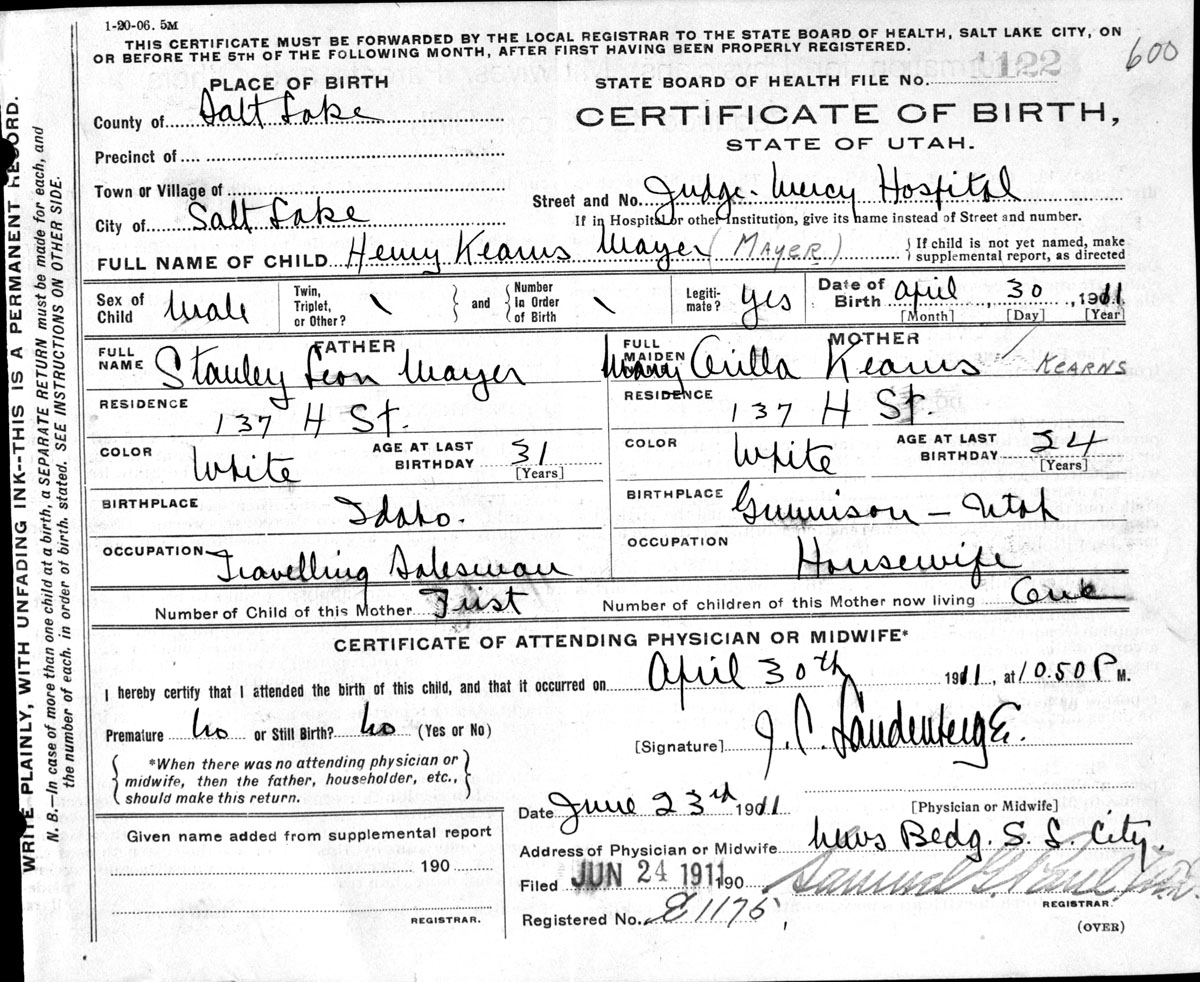 1-20-06. 5M
THIS CERTIFICATE MUST BE FORWARDED BY THE LOCAL REGISTRAR TO THE STATE BOARD OF HEALTH, SALT LAKE CITY, ON
OR BEFORE THE 5TH OF THE FOLLOWING MONTH, AFTER FIRST HAVING BEEN PROPERLY REGISTERED.
600
PLACE OF BIRTH
STATE BOARD OF HEALTH FILE NO. 1122
County of Salt Lake
CERTIFICATE OF BIRTH,
STATE OF UTAH.
Precinct of
Town or Village of
Street and No. Judge Mercy Hospital
City of Salt Lake
If in Hospital or other Institution, give its name instead of Street and number.
FULL NAME OF CHILD Henry Kearns Mayer (MAYER) If child is not yet named, make
supplemental report, as directed
Sex of Child Male
Twin, Triplet, or Other? \ and Number In Order of Birth \
Legiti-mate? Yes
Date of Birth April, 30, 1911
[Month] [Day] [Year]
FATHER
FULL NAME Stanley Leon Mayer
RESIDENCE 137 H St.
COLOR White AGE AT LAST BIRTHDAY 31 [Years]
BIRTHPLACE Idaho.
OCCUPATION Travelling Salesman
MOTHER
FULL MAIDEN NAME Mary Arilla Kearns KEARNS
RESIDENCE 137 H St.
COLOR White AGE AT LAST BIRTHDAY 24 [Years]
BIRTHPLACE Gunnison - Utah
OCCUPATION Housewife
Number of Child of this Mother First Number of children of this Mother now living One
CERTIFICATE OF ATTENDING PHYSICIAN OR MIDWIFE*
I hereby certify that I attended the birth of this child, and that it occurred on April 30th 1911, at 10.50 P M.
Premature No or Still Birth? No (Yes or No)
[Signature] J. C. Landenberger.
*When there was no attending physician or
midwife, then the father, householder, etc.,
should make this return.
Date June 23rd 1911
[Physician or Midwife]
Given name added from supplemental report
190
REGISTRAR.
Address of Physician or Midwife News Bedg. S. L. City.
Filed JUN 24 1911 190
REGISTRAR.
Registered No. E1175
(OVER)
WRITE PLAINLY, WITH UNFADING INK--THIS IS A PERMANENT RECORD.
N. B.—In case of more than one child at a birth, a SEPARATE RETURN must be made for each, and
the number of each, in order of birth, stated. SEE INSTRUCTIONS ON OTHER SIDE.